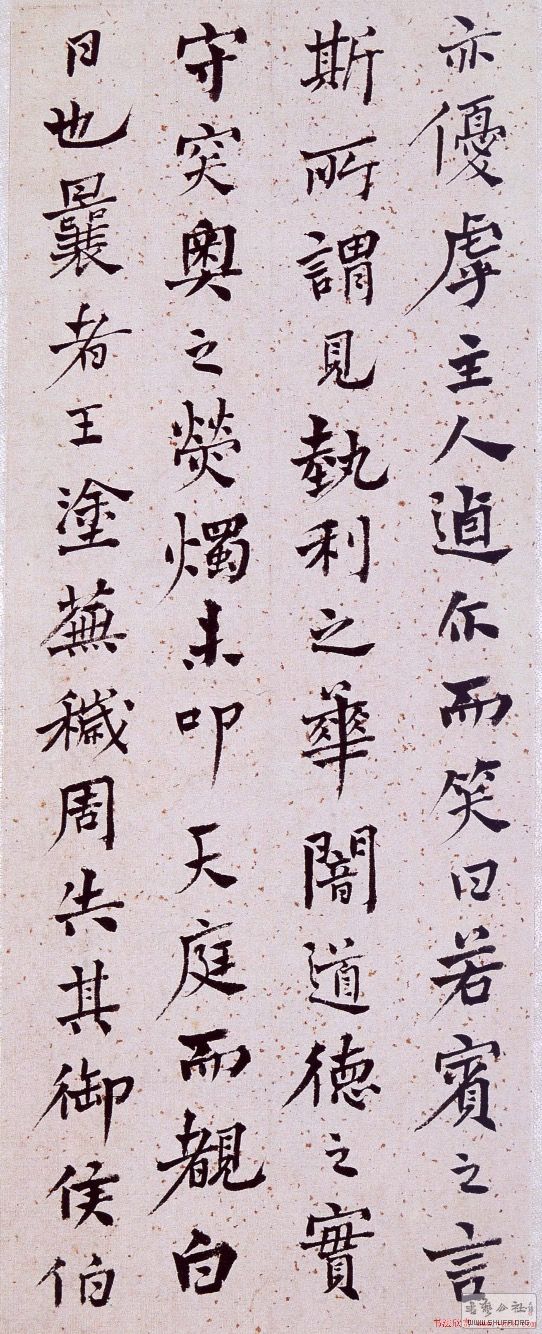 亦優虖主人逌尒而笑曰若賓之言
斯所謂見埶利之華闇道德之實
守突奧之熒燭未叩天庭而覩白
日也曩者王塗蕪穢周失其御侯伯
WWW.SHUFA.ORG